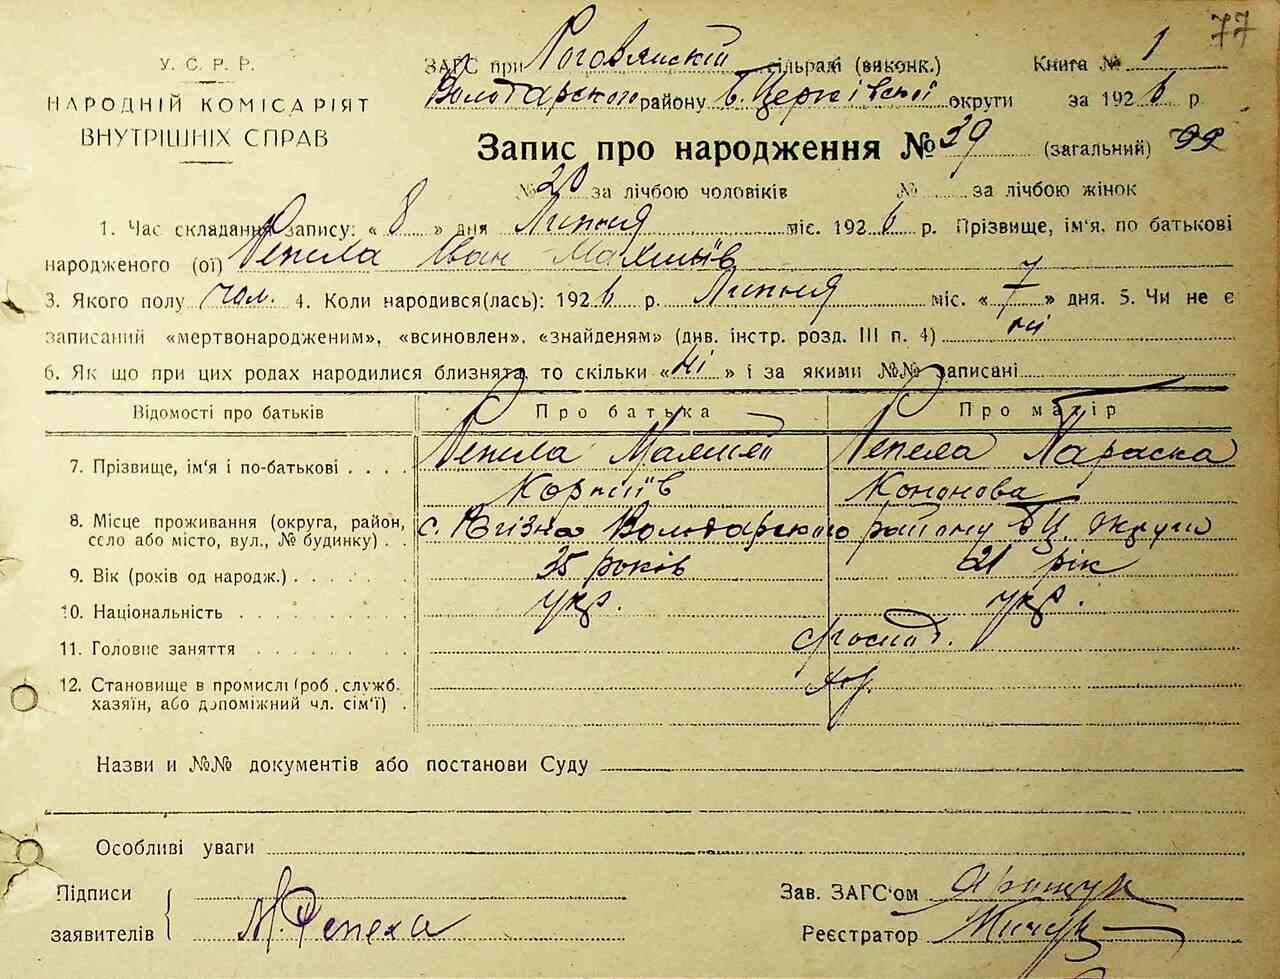 77
У. С. Р. Р.
НАРОДНІЙ КОМІСАРІЯТ
ВНУТРІШНІХ СПРАВ
ЗАГС при Роговянскій сільраді (виконк.) Книга № 1
Володарского району Б. Церківської округи за 1926 р.
Запис про народження № 39 (загальний) 99
№ 20 за лічбою чоловіків № за лічбою жінок
1. Час складання запису: « 8 » дня Липня міс. 1926 р. Прізвище, ім'я, по батькові
народженого (ої) Іван
3. Якого полу чол. 4. Коли народився(лась): 1926 р. Липня міс. « 7 » дня. 5. Чи не є
записаний «мертвонародженим», «всиновлен», «знайденям» (див. інстр. розд. III п. 4) ні
6. Як що при цих родах народилися близнята, то скільки « ні » і за якими №№ записані
Відомості про батьків Про батька Про матір
7. Прізвище, ім'я і по-батькові Параска
Кононова
8. Місце проживання (округа, район, с. Володарского району БЦ округи
село або місто, вул., № будинку)
9. Вік (років од народж.) 35 років 21 рік
10. Національність укр. укр.
11. Головне заняття
12. Становище в промислі (роб., служб.
хазяїн, або допоміжний чл. сім'ї)
Назви и №№ документів або постанови Суду
Особливі уваги
Підписи
заявителів М. Репеха
Зав. ЗАГС'ом
Реєстратор